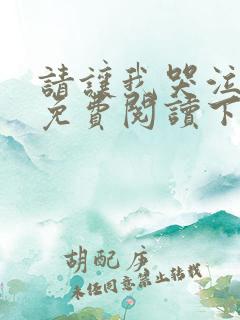 請讓我哭泣
免費閱讀下
胡配序
未經同意禁止轉載